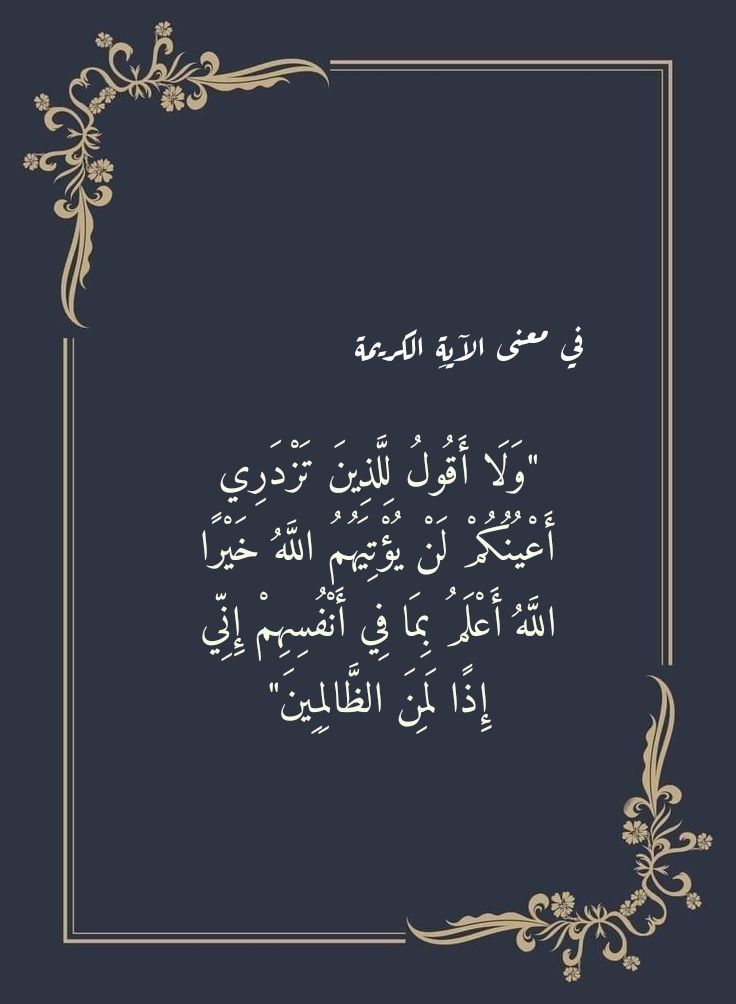 في معنى الآيةِ الكريمة
"وَلَا أَقُولُ لِلَّذِينَ تَزْدَرِي
أَعْيُنُكُمْ لَنْ يُؤْتِيَهُمُ اللَّهُ خَيْرًا
اللَّهُ أَعْلَمُ بِمَا فِي أَنْفُسِهِمْ إِنِّي
إِذًا لَمِنَ الظَّالِمِينَ"